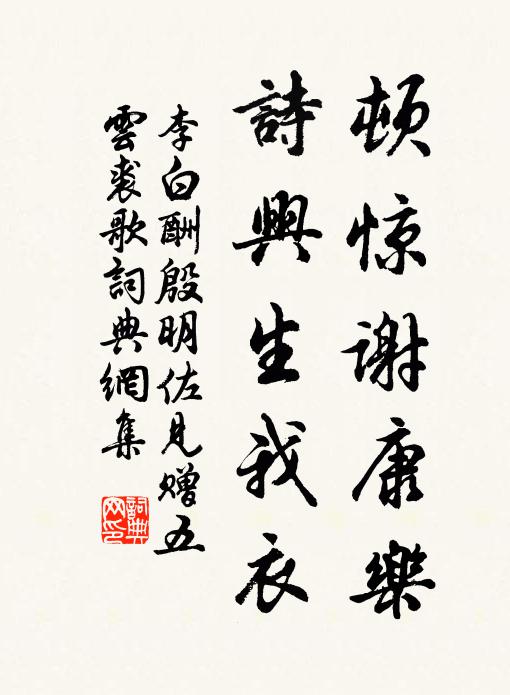 顿惊谢康樂
詩興生我衣
李白酬殷明佐見赠五
雲裘歌詞典網集
詞典網印